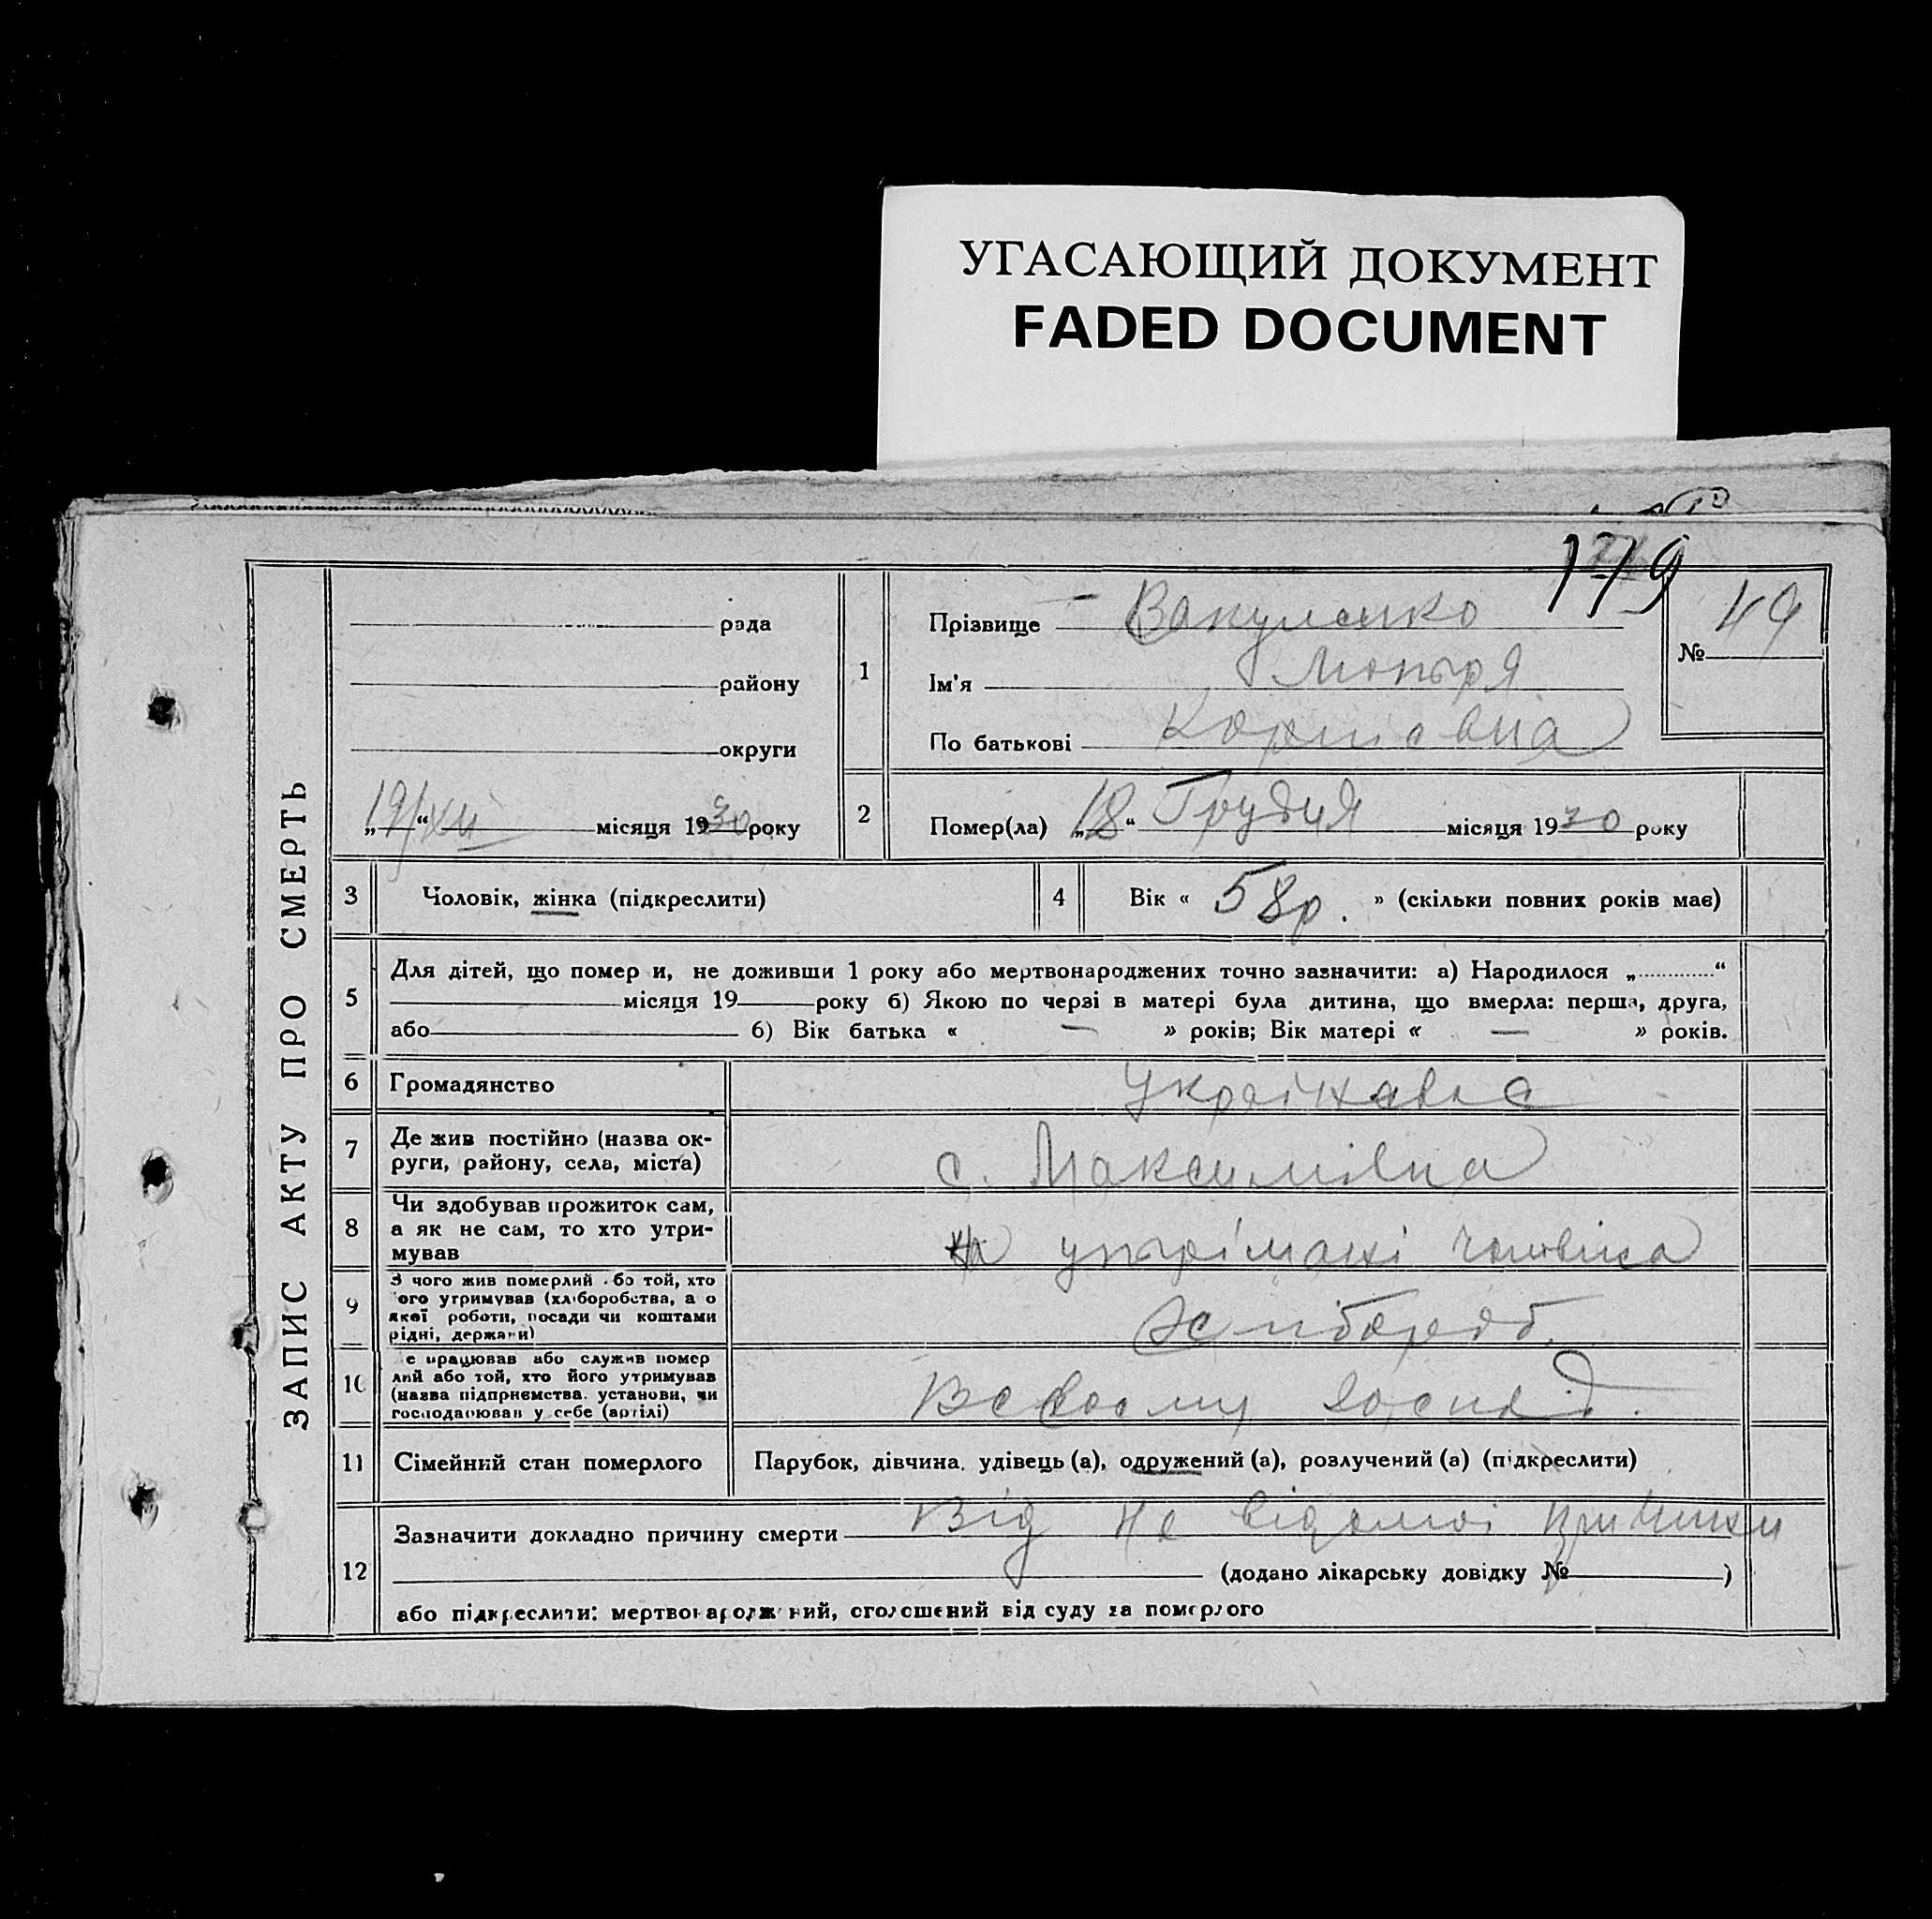 УГАСАЮЩИЙ ДОКУМЕНТ
FADED DOCUMENT
179
ЗАПИС АКТУ ПРО СМЕРТЬ
рада
району
округи
„19/XII“ місяця 1930 року
1
Прізвище Вакуленко
Ім'я Мотря
По батькові
№ 49
2
Помер(ла) „18“ Грудня місяця 1930 року
3 Чоловік, жінка (підкреслити)
4 Вік « 58р. » (скільки повних років має)
5
Для дітей, що помер и, не доживши 1 року або мертвонароджених точно зазначити: а) Народилося „ “
місяця 19 року б) Якою по черзі в матері була дитина, що вмерла: перша, друга,
або б) Вік батька « — » років; Вік матері « — » років.
6 Громадянство
7 Де жив постійно (назва ок-
руги, району, села, міста)
с. Максимівка
8 Чи здобував прожиток сам,
а як не сам, то хто утри-
мував
на утрімані чоловіка
9 З чого жив померлий бо той, хто
ого утримував (хліборобства, а о
якої роботи, посади чи коштами
рідні, держави)
10 е працював або служив помер
лий або той, хто його утримував
(назва підприємства, установи, чи
господарював у себе (артілі)
11 Сімейний стан померлого
Парубок, дівчина, удівець (а), одружений (а), розлучений (а) (підкреслити)
12
Зазначити докладно причину смерти Від не відомої причини
(додано лікарську довідку № )
або підкреслити: мертвонароджений, оголошений від суду за померлого